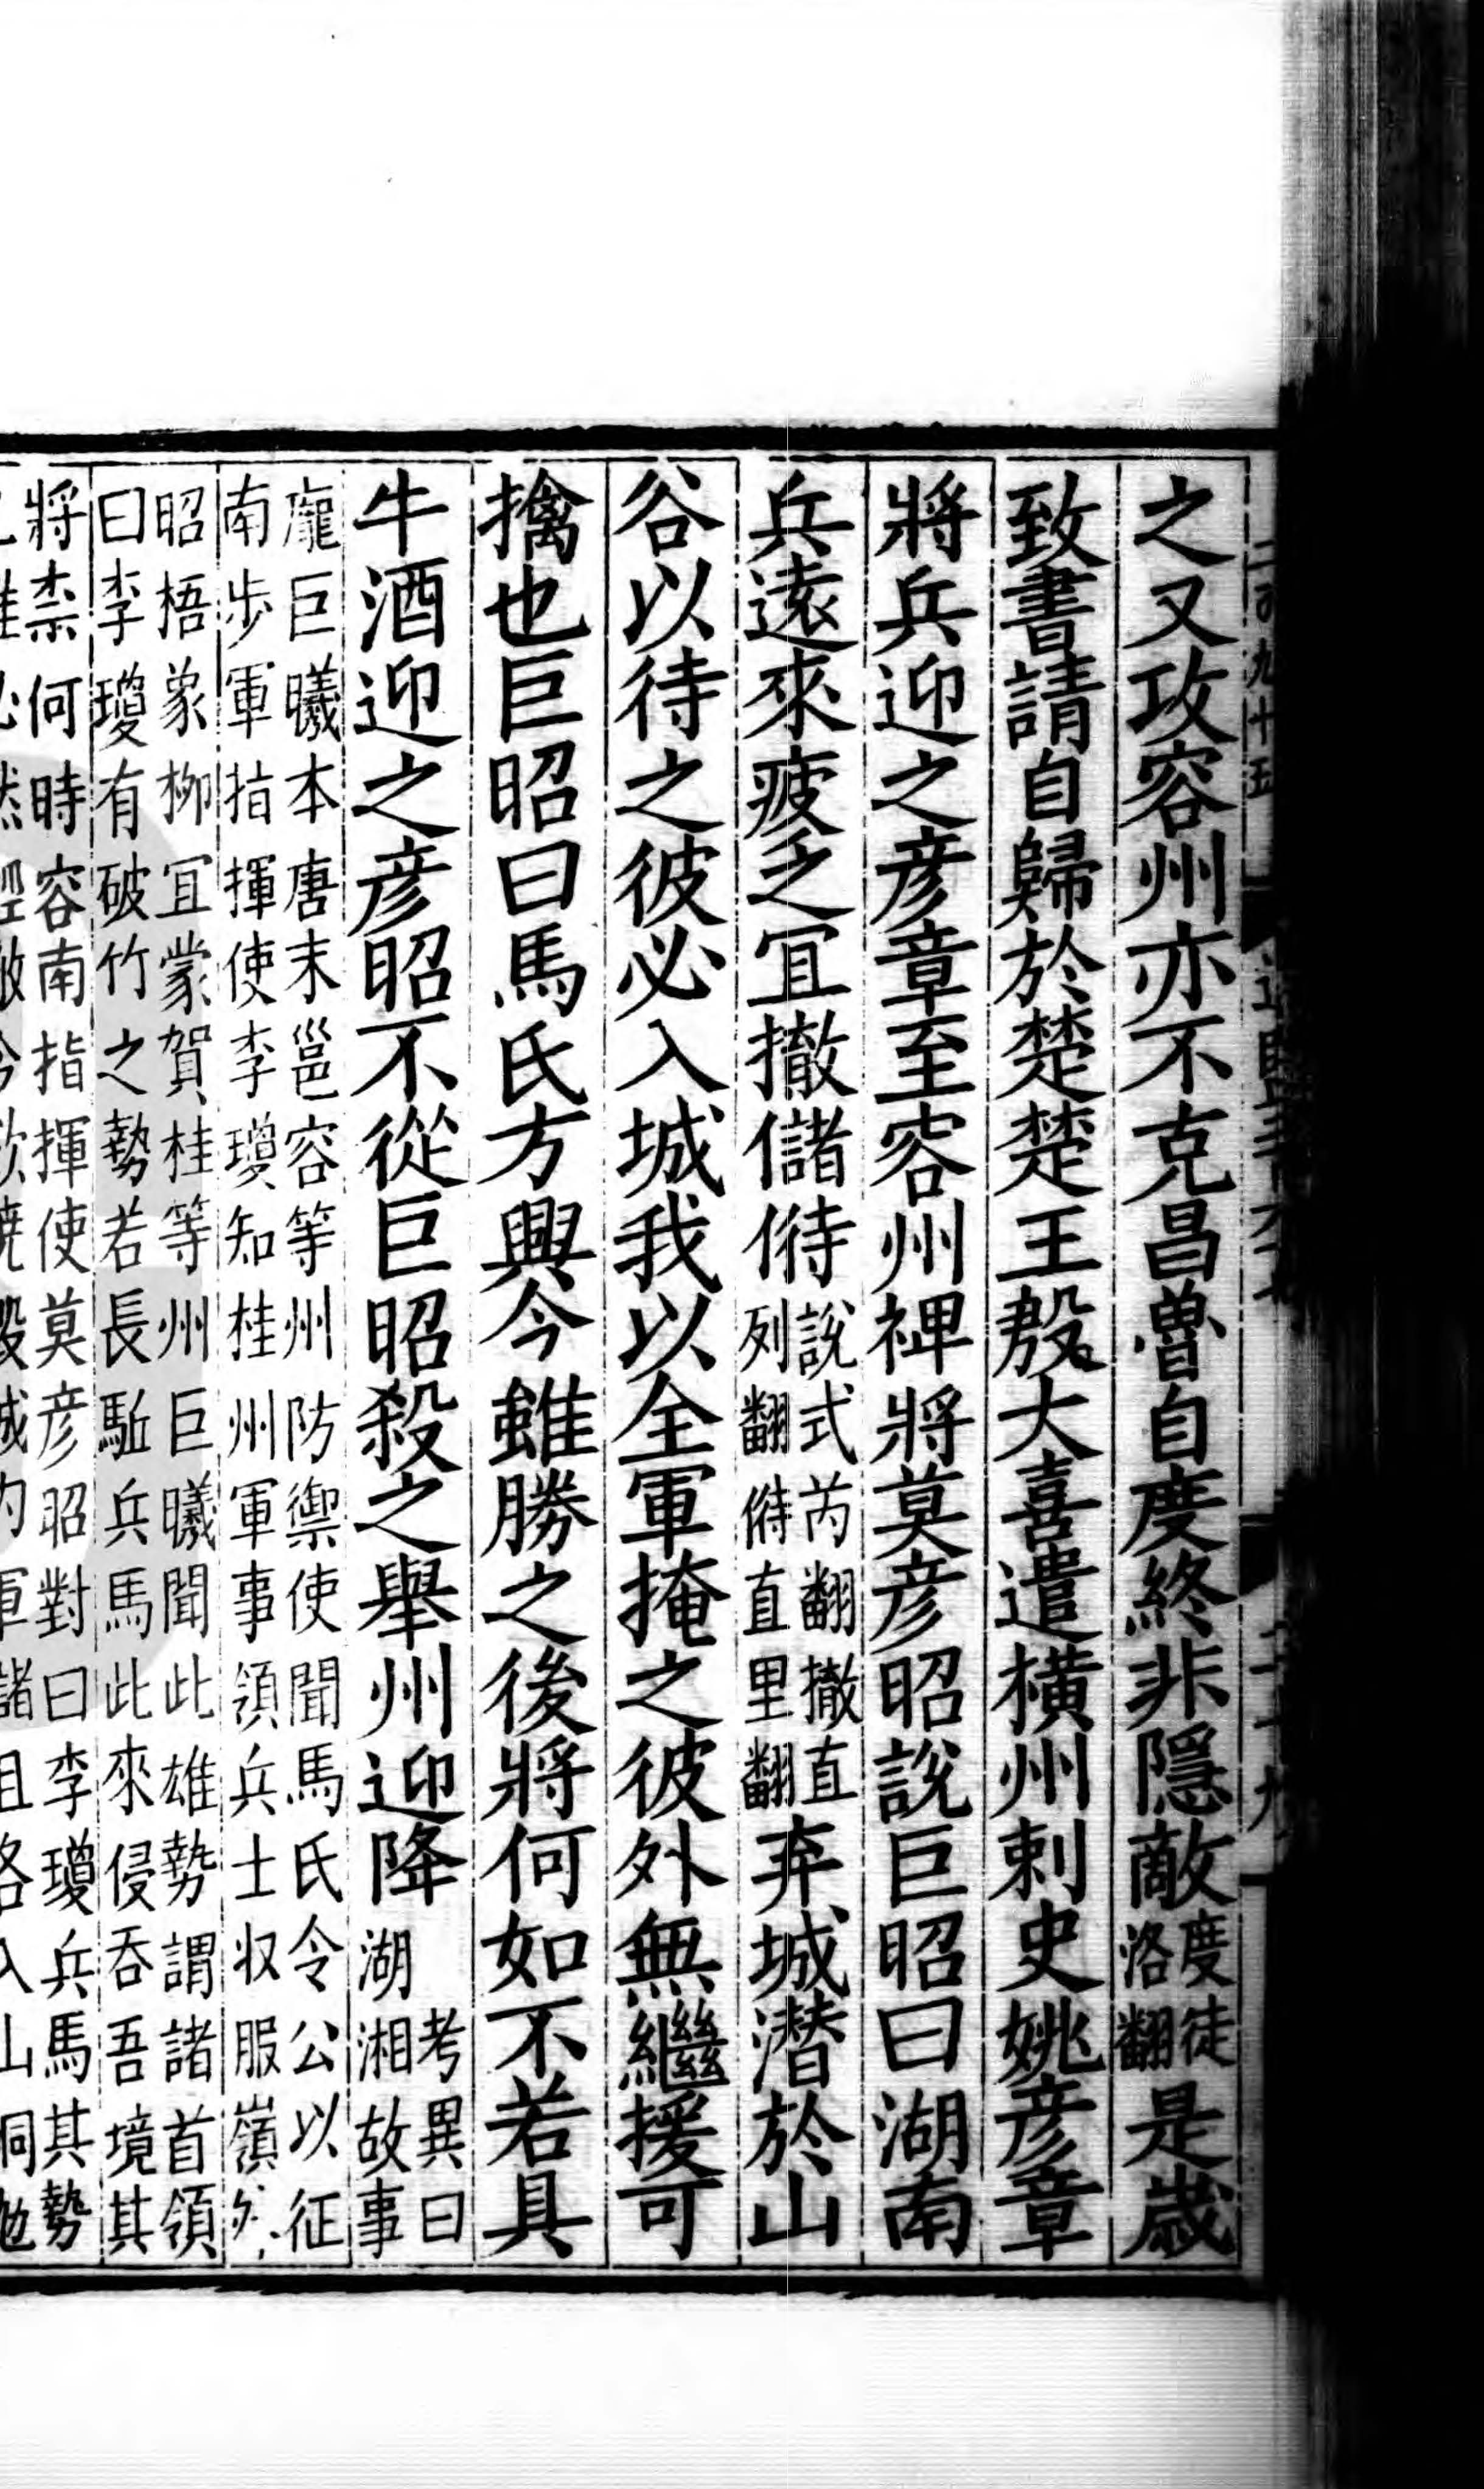 之又攻容州亦不克昌魯自度終非隱敵度徒洛翻是歲
致書請自歸於楚楚王殷大喜遣橫州刺史姚彥章
將兵迎之彥章至容州裨將莫彥昭說巨昭曰湖南
兵遠來疲乏宜撤儲偫說式芮翻撤直列翻偫直里翻弃城潛於山
谷以待之彼必入城我以全軍掩之彼外無繼援可
擒也巨昭曰馬氏方興今雖勝之後將何如不若具
牛酒迎之彥昭不從巨昭殺之舉州迎降考異曰湖湘故事
龐巨曦本唐末邕容等州防禦使聞馬氏令公以征
南步軍指揮使李瓊知桂州軍事領兵士収服嶺外
昭梧象柳宜蒙賀桂等州巨曦聞此雄勢謂諸首領
曰李瓊有破竹之勢若長駈兵馬此來侵吞吾境其
將柰何時容南指揮使莫彥昭對曰李瓊兵馬其勢